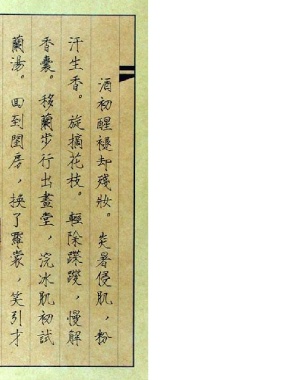 酒初醒褪却殘妝。炎暑侵肌，粉
汗生香。旋摘花枝。輕除蹀躞，慢解
香囊。移蘭步行出畫堂，浣冰肌初試
蘭湯。回到閨房，換了羅裳，笑引才